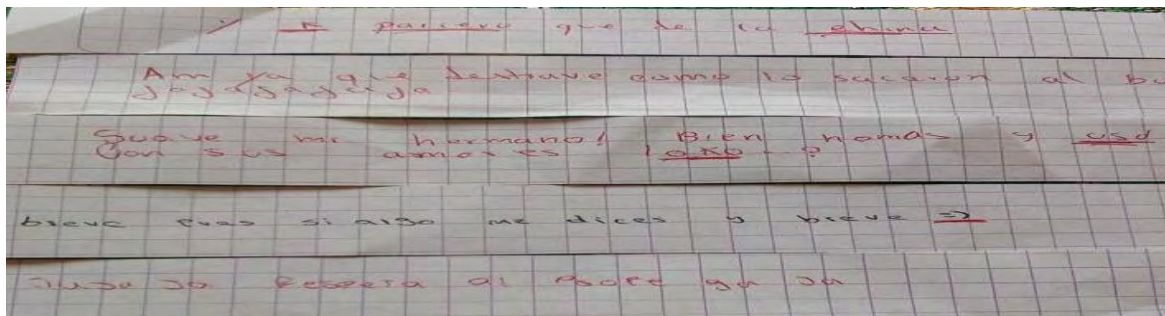 parcero que de la china
Am ya que estuve como lo sacaron al bu
jajajajajaja
Suave mi hermano! Bien nomas y usd
Con sus amores loko ?
breve pues si algo me dices y breve =>
al ja